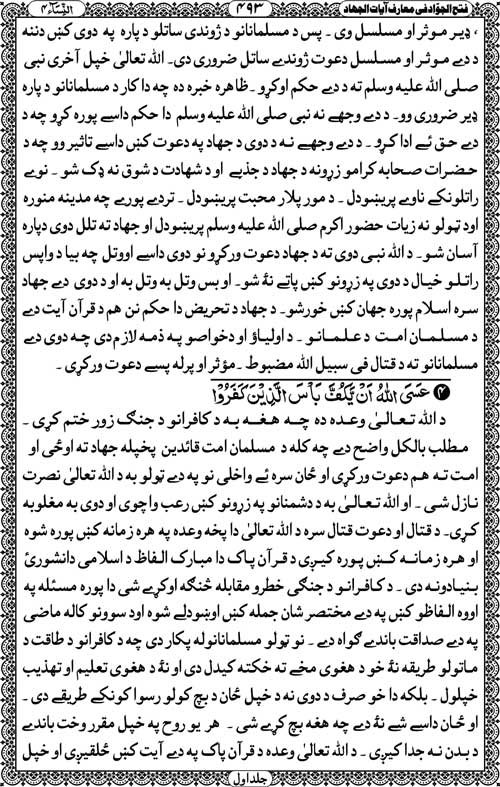 فتح الجوّاد فی معارف آیات الجهاد ۴۹۳ النِّسَاء ۴
، ډیر موثر او مسلسل وی ۔ پس د مسلمانانو د ژوندی ساتلو د پاره په دوی کښ دننه
د دے موثر او مسلسل دعوت ژوندے ساتل ضروری دی۔ الله تعالیٰ خپل آخری نبی
صلی الله علیه وسلم ته د دے حکم اوکړو ۔ ظاهره خبره ده چه دا کار د مسلمانانو د پاره
ډیر ضروری وو۔ د دے وجهے نه نبی صلی الله علیه وسلم دا حکم داسے پوره کړو چه د
دے حق ئے ادا کړو ۔ د دے وجهے نه د دوی د جهاد په دعوت کښ داسے تاثیر وو چه د
حضرات صحابه کرامو زړونه د جهاد د جذبے او د شهادت د شوق نه ډک شو ۔ نوے
راتلونکے ناوے پریښودل ۔ د مور پلار محبت پریښودل ۔ تردے پورے چه مدینه منوره
اود ټولو نه زیات حضور اکرم صلی الله علیه وسلم پریښودل او جهاد ته تلل دوی دپاره
آسان شو۔ د الله نبی دوی ته د جهاد دعوت ورکړو نو دوی داسے اووتل چه بیا د واپس
راتلو خیال د دوی په زړونو کښ پاتے نۀ شو۔ او بس وتل به وتل به او د دوی دے جهاد
سره اسلام پوره جهان کښ خورشو۔ د جهاد د تحریض دا حکم نن هم د قرآن آیت دے
د مسلمان امت د علمانو ۔ د اولیاؤ او دخواصو په ذمه لازم دی چه دوی دے
مسلمانانو ته د قتال فی سبیل الله مضبوط ۔ مؤثر او پرله پسے دعوت ورکړی ۔
❷ عَسَی اللهُ اَنْ یَّکُفَّ بَاْسَ الَّذِیْنَ کَفَرُوْا
د الله تعالیٰ وعده ده چه هغه به د کافرانو د جنګ زور ختم کړی ۔
مطلب بالکل واضح دے چه کله د مسلمان امت قائدین پخپله جهاد ته اوځی او
امت ته هم دعوت ورکړی او ځان سره ئے واخلی نو په دے ټولو به د الله تعالیٰ نصرت
نازل شی ۔ او الله تعالیٰ به د دشمنانو په زړونو کښ رعب واچوی او دوی به مغلوبه
کړی۔ د قتال او دعوت قتال سره د الله تعالیٰ دا پخه وعده په هره زمانه کښ پوره شوه
او هره زمانه کښ پوره کیږی د قرآن پاک دا مبارک الفاظ د اسلامی دانشورئ
بنیادونه دی ۔ د کافرانو د جنګی خطرو مقابله څنګه اوکړے شی دا پوره مسئله په
اووه الفاظو کښ په دے مختصر شان جمله کښ اوښودلے شوه اود سوونو کاله ماضی
په دے صداقت باندے ګواه دے ۔ نو ټولو مسلمانانوله پکار دی چه د کافرانو د طاقت د
ماتولو طریقه نۀ خو د هغوی مخے ته خکته کیدل دی او نۀ د هغوی تعلیم او تهذیب
خپلول ۔ بلکه دا خو صرف د دوی نه د خپل ځان د بچ کولو رسوا کونکے طریقے دی۔
او ځان داسے شے نۀ دے چه هغه بچ کړے شی ۔ هر یو روح په خپل مقرر وخت باندے
د بدن نه جدا کیږی ۔ د الله تعالیٰ وعده د قرآن پاک په دے آیت کښ ځلقیږی او خپل
جلد اول